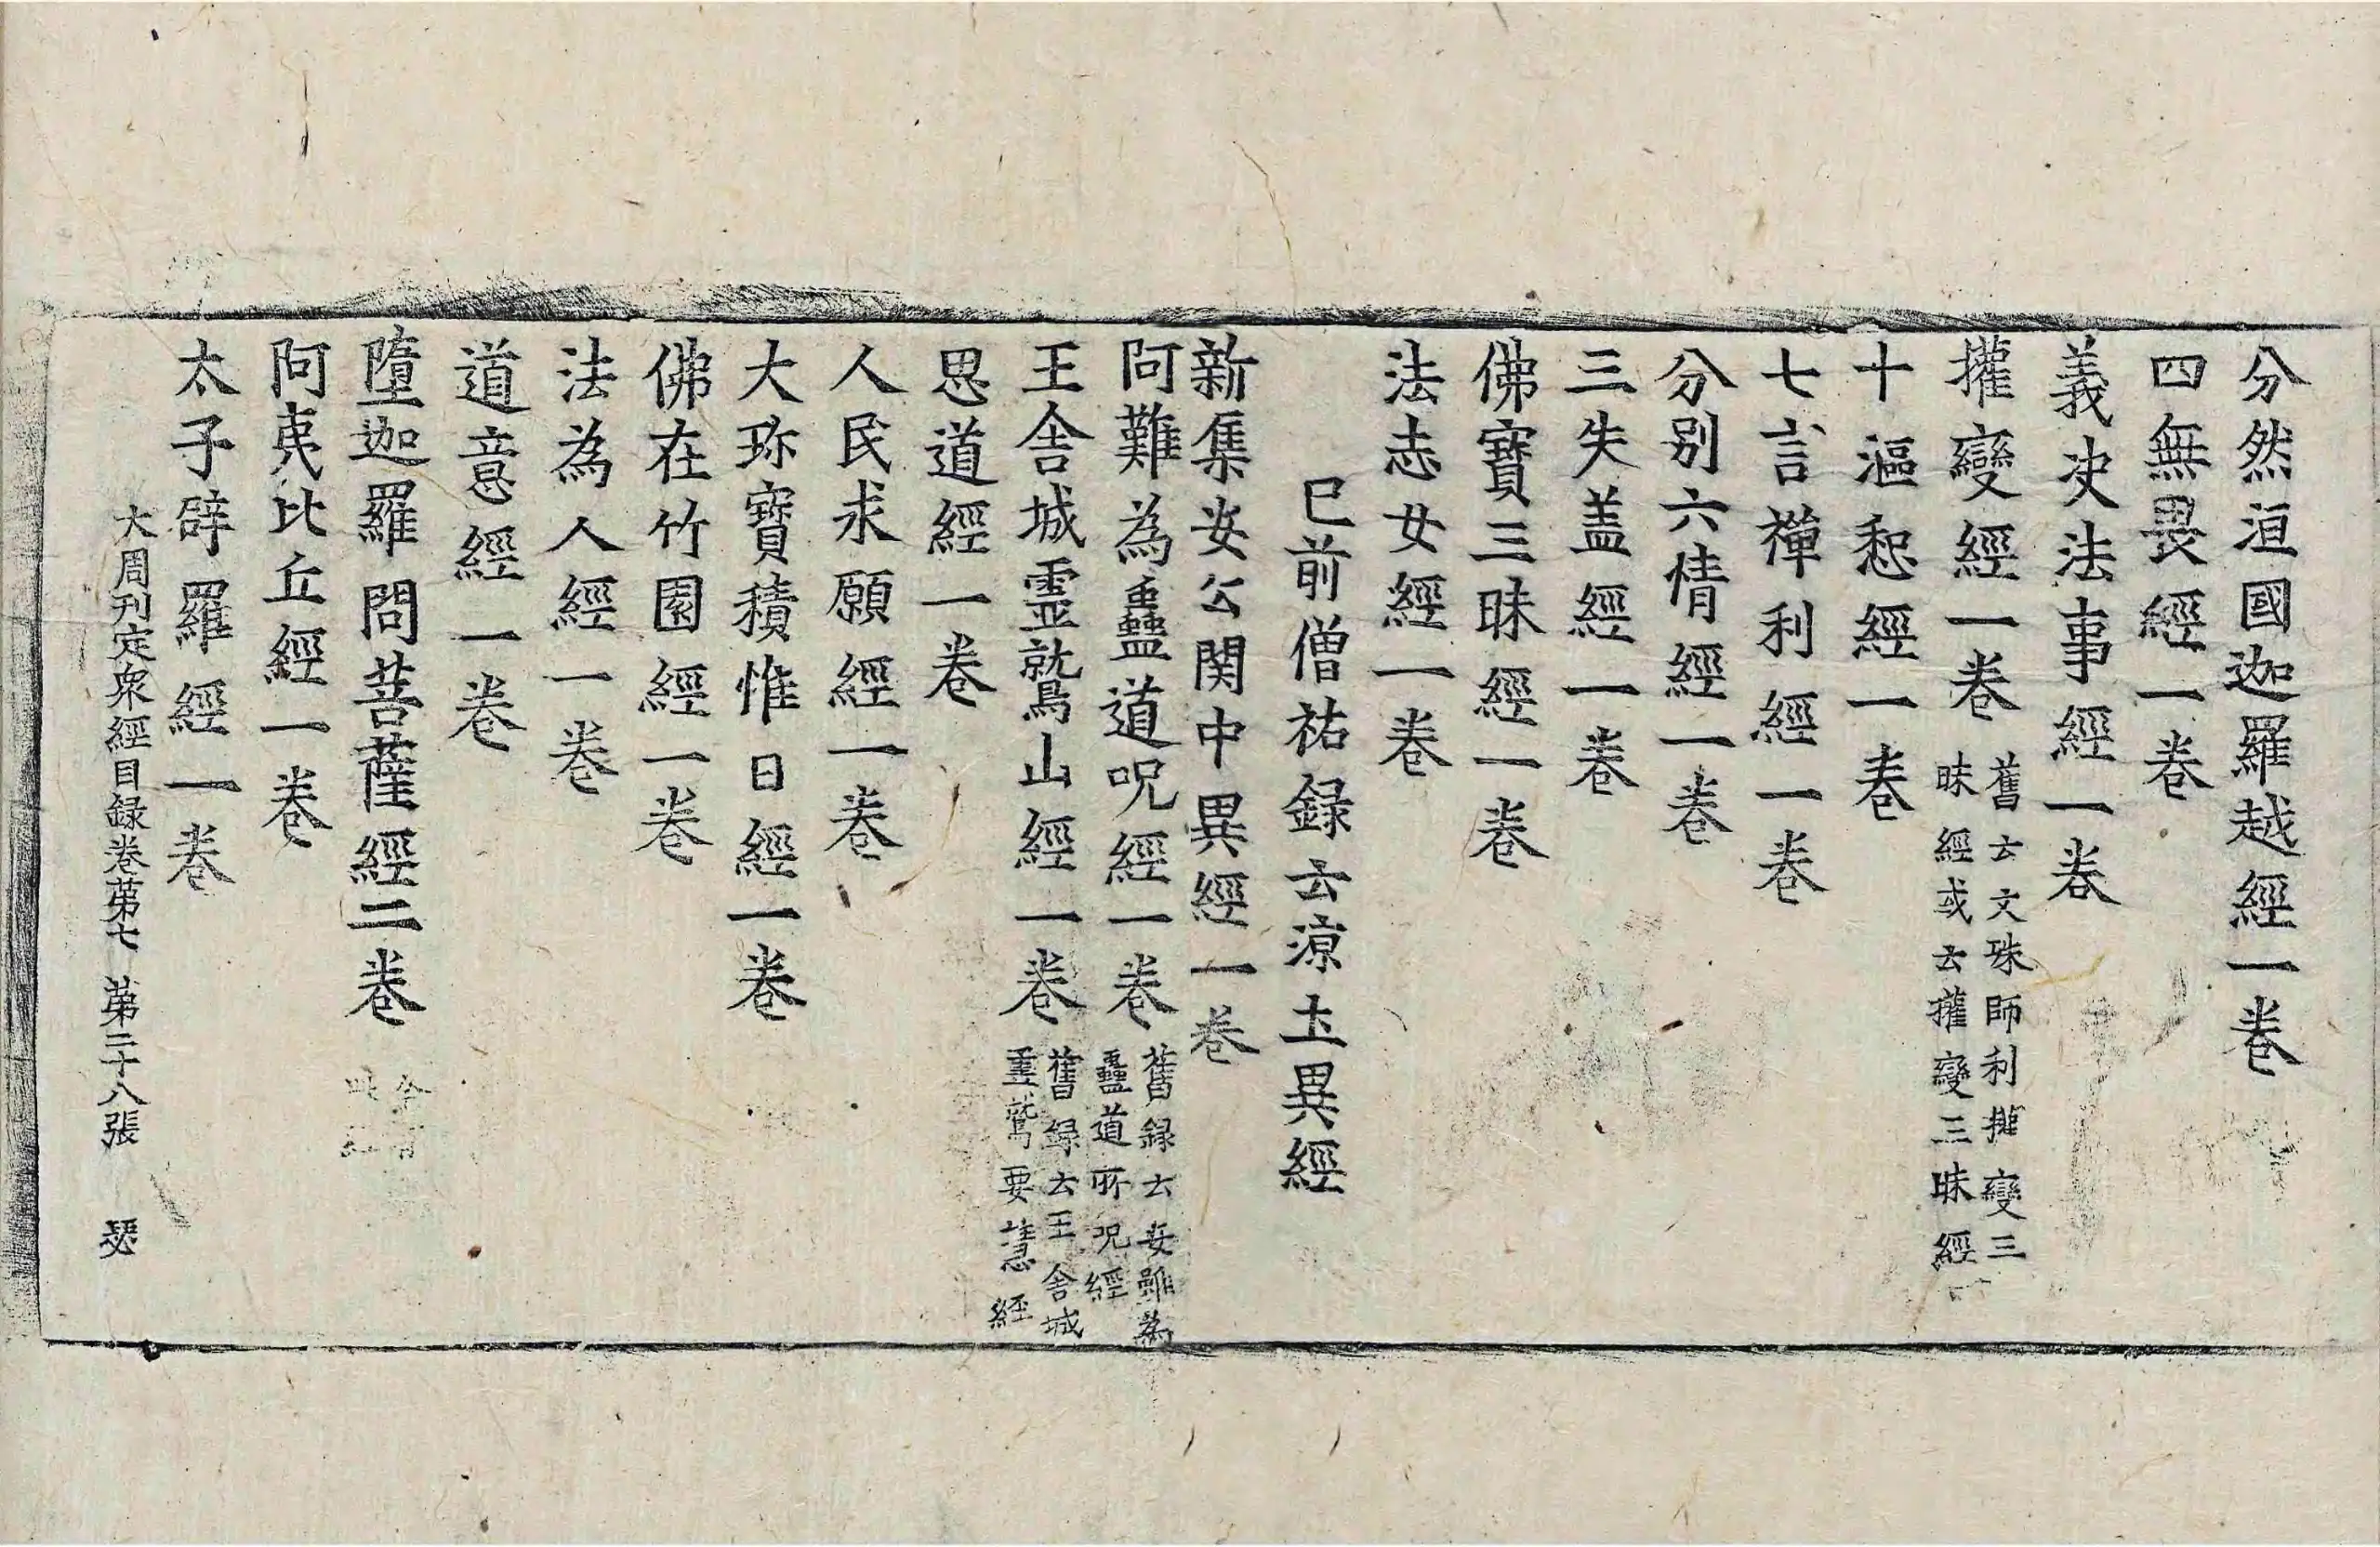 分然洹國迦羅越經一卷
四無畏經一卷
義决法事經一卷
㩲變經一卷
舊云文殊師利㩲變三
昧經或云㩲變三昧經
十漚惒經一卷
七言禪利經一卷
分別六情經一卷
三失盖經一卷
佛寶三昧經一卷
法志女經一卷
已前僧祐録云涼土異經
新集安公関中異經一卷
阿難為蠱道呪經一卷
舊録云安難為
蠱道所呪經
王舍城靈鷲山經一卷
舊録云王舍城
靈鷲要慧經
思道經一卷
人民求願經一卷
大珎寶積惟日經一卷
佛在竹園經一卷
法為人經一卷
道意經一卷
墮迦羅問菩薩經二卷
阿夷比丘經一卷
太子辟羅經一卷
大周刋定衆經目録卷苐七 苐二十八張 瑟